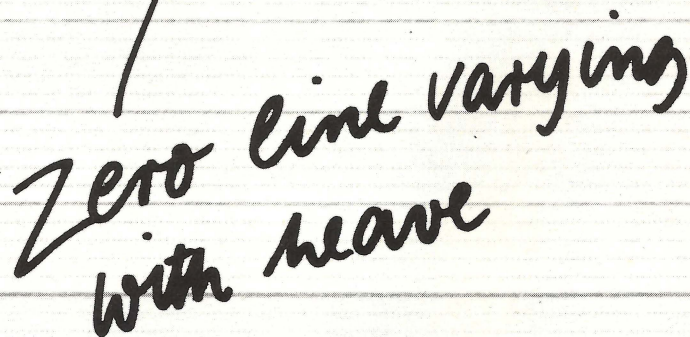 Zero line varying
with heave